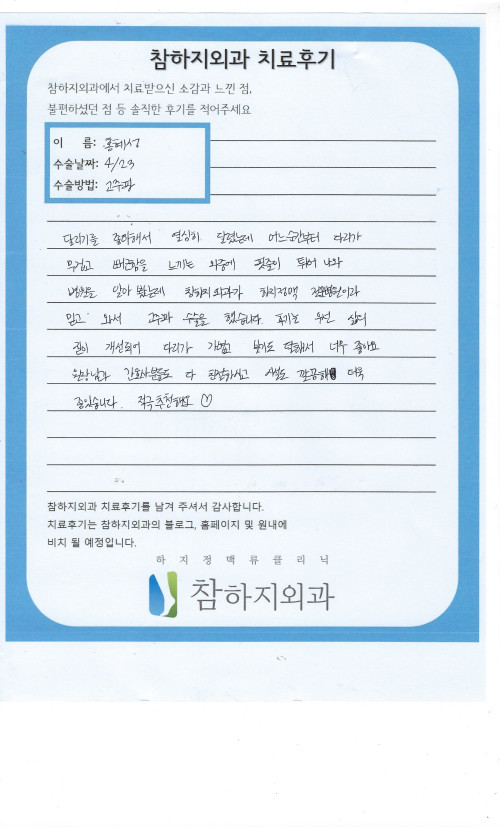 참하지외과 치료후기
참하지외과에서 치료받으신 소감과 느낀 점,
불편하셨던 점 등 솔직한 후기를 적어주세요
이 름: 홍혜성
수술날짜: 4/23
수술방법: 고주파
달리기를 좋아해서 열심히 달렸는데 어느순간부터 다리가
무겁고 뻐근함을 느끼는 와중에 핏줄이 튀어 나와
병원을 알아 봤는데 참하지외과가 하지정맥 전문병원이라
믿고 와서 고주파 수술을 했습니다. 후기는 우선 삶의
질이 개선되어 다리가 가볍고 보기도 덜해서 너무 좋아요
원장님과 간호사분들도 다 친절하시고 시설도 깔끔해 더욱
좋았습니다. 적극 추천해요 ♡
참하지외과 치료후기를 남겨 주셔서 감사합니다.
치료후기는 참하지외과의 블로그, 홈페이지 및 원내에
비치 될 예정입니다.
하지정맥류클리닉
참하지외과